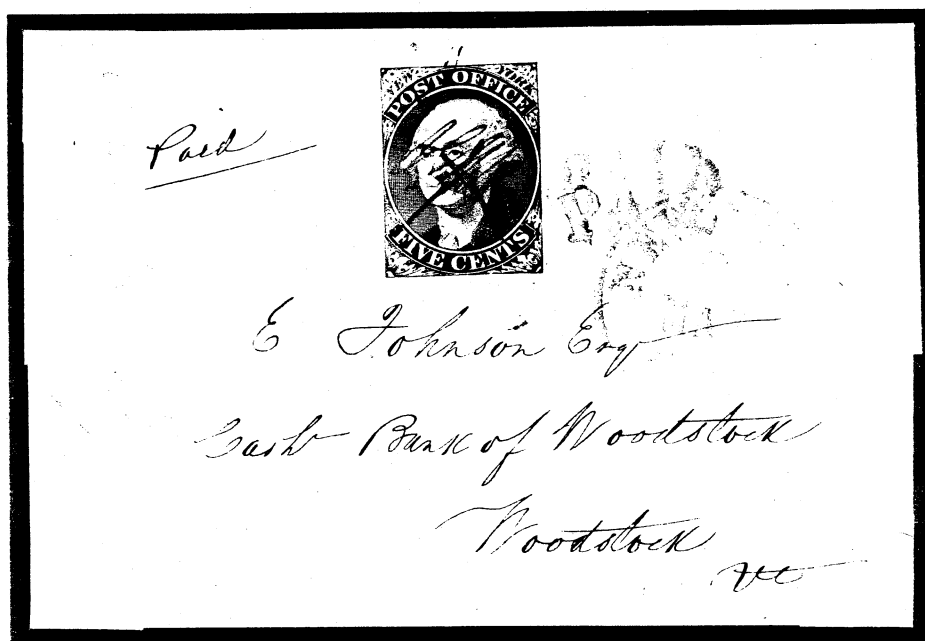 Paid
NEW YORK
POST OFFICE
FIVE CENTS
PAID
E Johnson Esqr
Cashr Bank of Woodstock
Woodstock
Vt